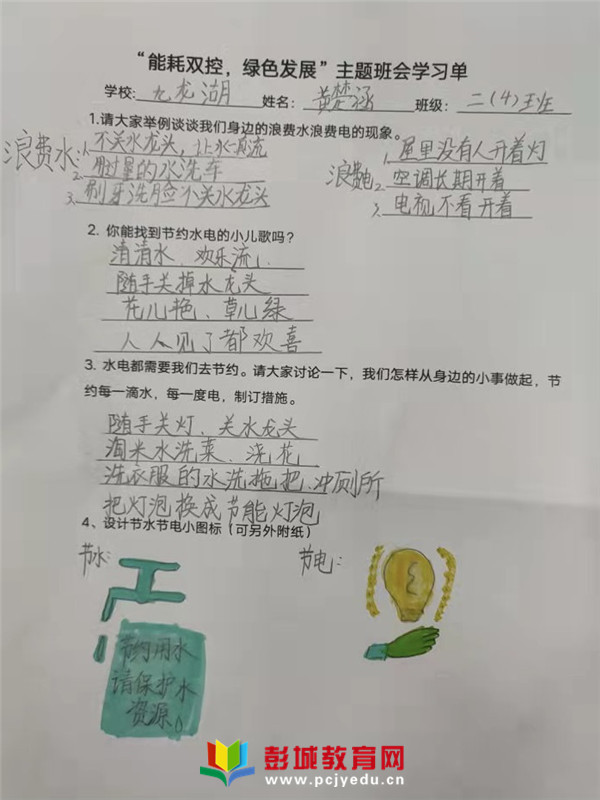 “能耗双控，绿色发展”主题班会学习单
学校: 九龙湖 姓名: 黄楚涵 班级: 二(4)班
1.请大家举例谈谈我们身边的浪费水浪费电的现象。
浪费水: 1.不关水龙头，让水直流
2.用过量的水洗车
3.刷牙洗脸不关水龙头
浪费电 1.屋里没有人开着灯
2.空调长期开着
3.电视不看开着
2. 你能找到节约水电的小儿歌吗？
清清水、欢乐流，
随手关掉水龙头
花儿艳、草儿绿
人人见了都欢喜
3. 水电都需要我们去节约。请大家讨论一下，我们怎样从身边的小事做起，节
约每一滴水，每一度电，制订措施。
随手关灯、关水龙头
淘米水洗菜、浇花
洗衣服的水洗拖把、冲厕所
把灯泡换成节能灯泡
4、设计节水节电小图标（可另外附纸）
节水: 节电:
节约用水
请保护水
资源。
彭城教育网
www.pcjyedu.cn